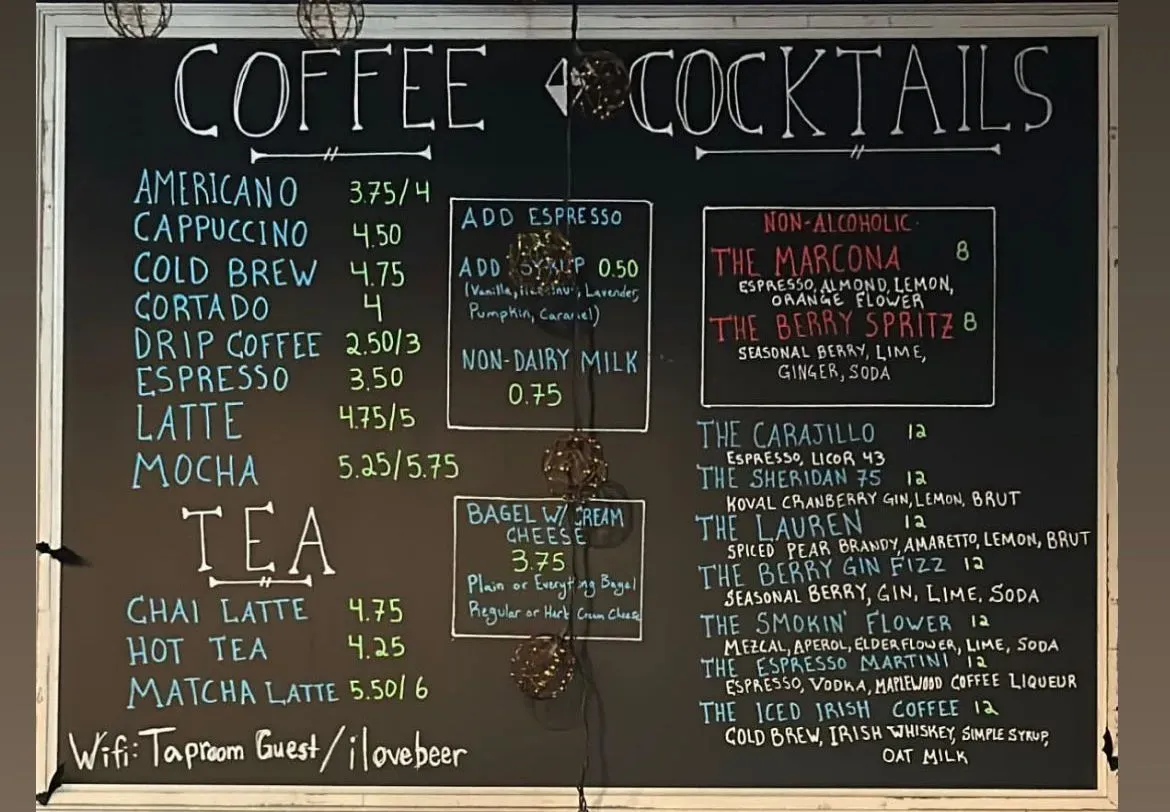 COFFEE
AMERICANO 3.75/4
CAPPUCCINO 4.50
COLD BREW 4.75
CORTADO 4
DRIP COFFEE 2.50/3
ESPRESSO 3.50
LATTE 4.75/5
MOCHA 5.25/5.75
TEA
CHAI LATTE 4.75
HOT TEA 4.25
MATCHA LATTE 5.50/6
Wifi: Taproom Guest/ilovebeer
ADD ESPRESSO
ADD SYRUP 0.50
(Vanilla, Lavender,
Pumpkin, Caramel)
NON-DAIRY MILK
0.75
BAGEL W/ CREAM
CHEESE
3.75
Plain or Everything Bagel
Regular or Herb Cream Cheese
COCKTAILS
NON-ALCOHOLIC
THE MARCONA 8
ESPRESSO, ALMOND, LEMON,
ORANGE FLOWER
THE BERRY SPRITZ 8
SEASONAL BERRY, LIME,
GINGER, SODA
THE CARAJILLO 12
ESPRESSO, LICOR 43
THE SHERIDAN 75 12
KOVAL CRANBERRY GIN, LEMON, BRUT
THE LAUREN 12
SPICED PEAR BRANDY, AMARETTO, LEMON, BRUT
THE BERRY GIN FIZZ 12
SEASONAL BERRY, GIN, LIME, SODA
THE SMOKIN' FLOWER 12
MEZCAL, APEROL, ELDERFLOWER, LIME, SODA
THE ESPRESSO MARTINI 12
ESPRESSO, VODKA, MAPLEWOOD COFFEE LIQUEUR
THE ICED IRISH COFFEE 12
COLD BREW, IRISH WHISKEY, SIMPLE SYRUP,
OAT MILK